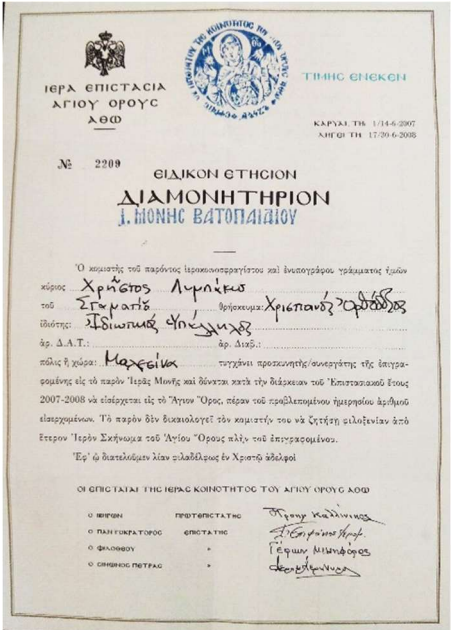 ΙΕΡΑ ΕΠΙСΤΑСΙΑ
ΑΓΙΟΥ ΟΡΟΥС
ΑΘΩ
ΤΙΜΗС ΕΝΕΚΕΝ
ΚΑΡΥΑΙ ΤΗι 1/14-6-2007
ΛΗΓΕΙ ΤΗ 17/30-6-2008
№ 2209
ΕΙΔΙΚΟΝ ΕΤΗСΙΟΝ
ΔΙΑΜΟΝΗΤΗΡΙΟΝ
Ι. ΜΟΝΗΣ ΒΑΤΟΠΑΙΔΙΟΥ
Ὁ κομιστὴς τοῦ παρόντος ἱεροκοινοσφραγίστου καὶ ἐνυπογράφου γράμματος ἡμῶν
κύριος Χρῆστος
τοῦ θρήσκευμα: Χριστιανὸς Ὀρθόδοξος
ἰδιότης: Ἰδιωτικὸς ὑπάλληλος
ἀρ. Δ.Α.Τ.: ἀρ. Διαβ.:
πόλις ἢ χώρα: Μαλεσίνα τυγχάνει προσκυνητὴς/συνεργάτης τῆς ἐπιγρα-
φομένης εἰς τὸ παρὸν Ἱερᾶς Μονῆς καὶ δύναται κατὰ τὴν διάρκειαν τοῦ Ἐπιστασιακοῦ ἔτους
2007-2008 νὰ εἰσέρχεται εἰς τὸ Ἅγιον Ὄρος, πέραν τοῦ προβλεπομένου ἡμερησίου ἀριθμοῦ
εἰσερχομένων. Τὸ παρὸν δὲν δικαιολογεῖ τὸν κομιστήν του νὰ ζητήσῃ φιλοξενίαν ἀπὸ
ἕτερον Ἱερὸν Σκήνωμα τοῦ Ἁγίου Ὄρους πλὴν τοῦ ἐπιγραφομένου.
Ἐφ' ᾧ διατελοῦμεν λίαν φιλαδέλφως ἐν Χριστῷ ἀδελφοὶ
ΟΙ ΕΠΙСΤΑΤΑΙ ΤΗС ΙΕΡΑС ΚΟΙΝΟΤΗΤΟС ΤΟΥ ΑΓΙΟΥ ΟΡΟΥС ΑΘΩ
Ο ΙΒΗΡΩΝ ΠΡΩΤΕΠΙСΤΑΤΗС
Ο ΠΑΝΤΟΚΡΑΤΟΡΟС ΕΠΙСΤΑΤΗС
Ο ΦΙΛΟΘΕΟΥ »
Ο СΙΜΩΝΟС ΠΕΤΡΑС »